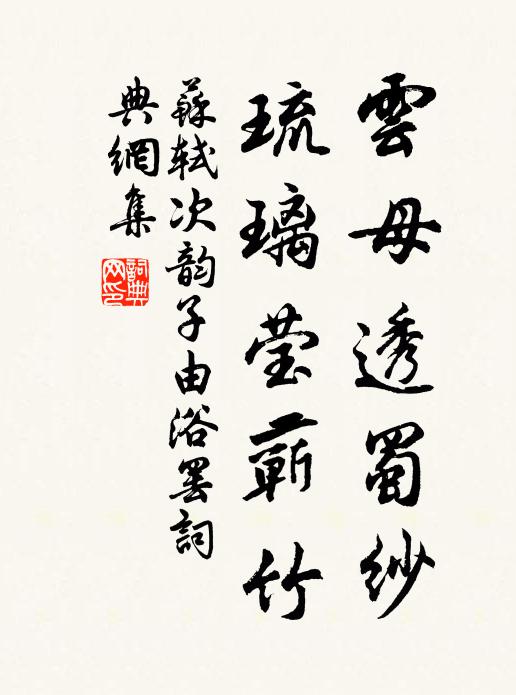 雲母透蜀紗
琉璃莹蘄竹
蘇軾次韵子由浴罢詞
典網集
詞典网印